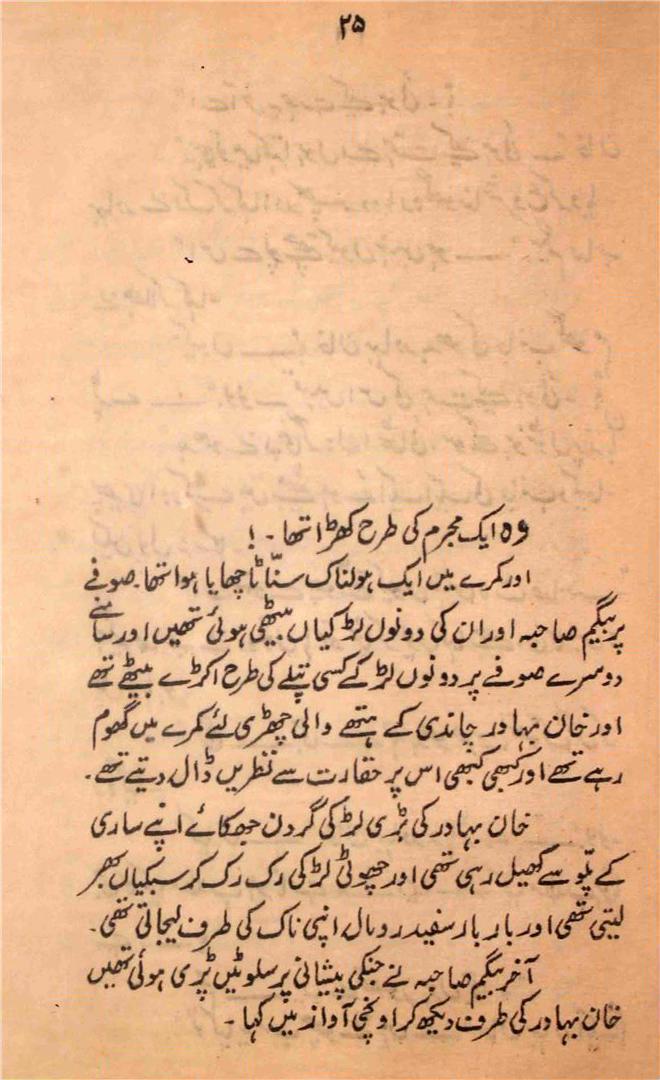 ۲۵
وہ ایک مجرم کی طرح کھڑا تھا ۔ !
اور کمرے میں ایک ہولناک سنّاٹا چھایا ہوا تھا۔ صوفے
پر بیگم صاحبہ اور ان کی دونوں لڑکیاں بیٹھی ہوئی تھیں اور سامنے
دوسرے صوفے پر دونوں لڑکے کسی پتلے کی طرح اکڑے بیٹھے تھے
اور خان بہادر چاندی کے ہتھے والی چھڑی لئے کمرے میں گھوم
رہے تھے اور کبھی کبھی اس پر حقارت سے نظریں ڈال دیتے تھے ۔
خان بہادر کی بڑی لڑکی گردن جھکائے اپنے ساری
کے پلّو سے کھیل رہی تھی اور چھوٹی لڑکی رک رک کر سبکیاں بھر
لیتی تھی اور بار بار سفید رومال اپنی ناک کی طرف لیجاتی تھی ۔
آخر بیگم صاحبہ نے جنکی پیشانی پر سلوٹیں پڑی ہوئی تھیں
خان بہادر کی طرف دیکھ کر اونچی آواز میں کہا ۔